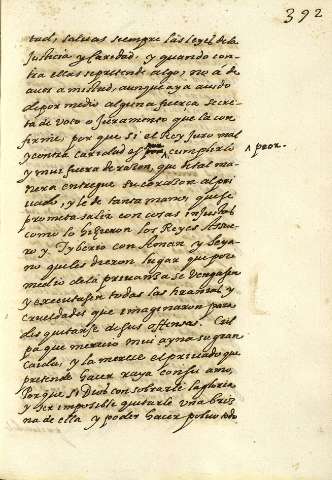 392
tad, salvas siempre las leyes de la
Justicia y Caridad, y quando con-
tra ellas se pretende algo, no a de
aver amistad, aunque aya avido
de por medio alguna fuerça secre-
ta de voto o Juramento que la con-
firme, por que si el Rey Juro mal
y contra caridad es ^ cumplirlo ^ peor.
y muy fuera de raçon, que de tal ma-
nera entregue su coraçon al pri-
vado, y le de tanta mano, que se
prometa salir con cosas injustas
como lo hizieron los Reyes Asue-
ro y Tyberio con Aman y Seya-
no quales dieron lugar que por
medio de la privança se vengasen
y executasen todas las tiranias y
crueldades que imaginaron para
disquitarse de sus offensas. Cul
pa que merecio muy ayna su gran
Caida, y la merece el privado que
pretende haçer raya con su amo,
Porque si Dios con sobrarle la gloria
y ser imposible quitarle una bris
na de ella y poder haçer todo